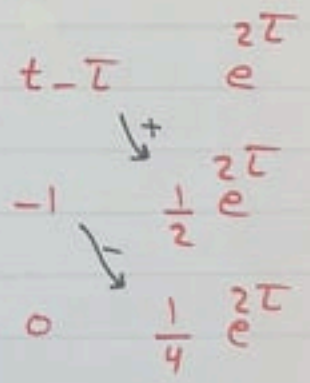 t - τ e^{2τ}
+
-1 \frac{1}{2} e^{2τ}
-
0 \frac{1}{4} e^{2τ}